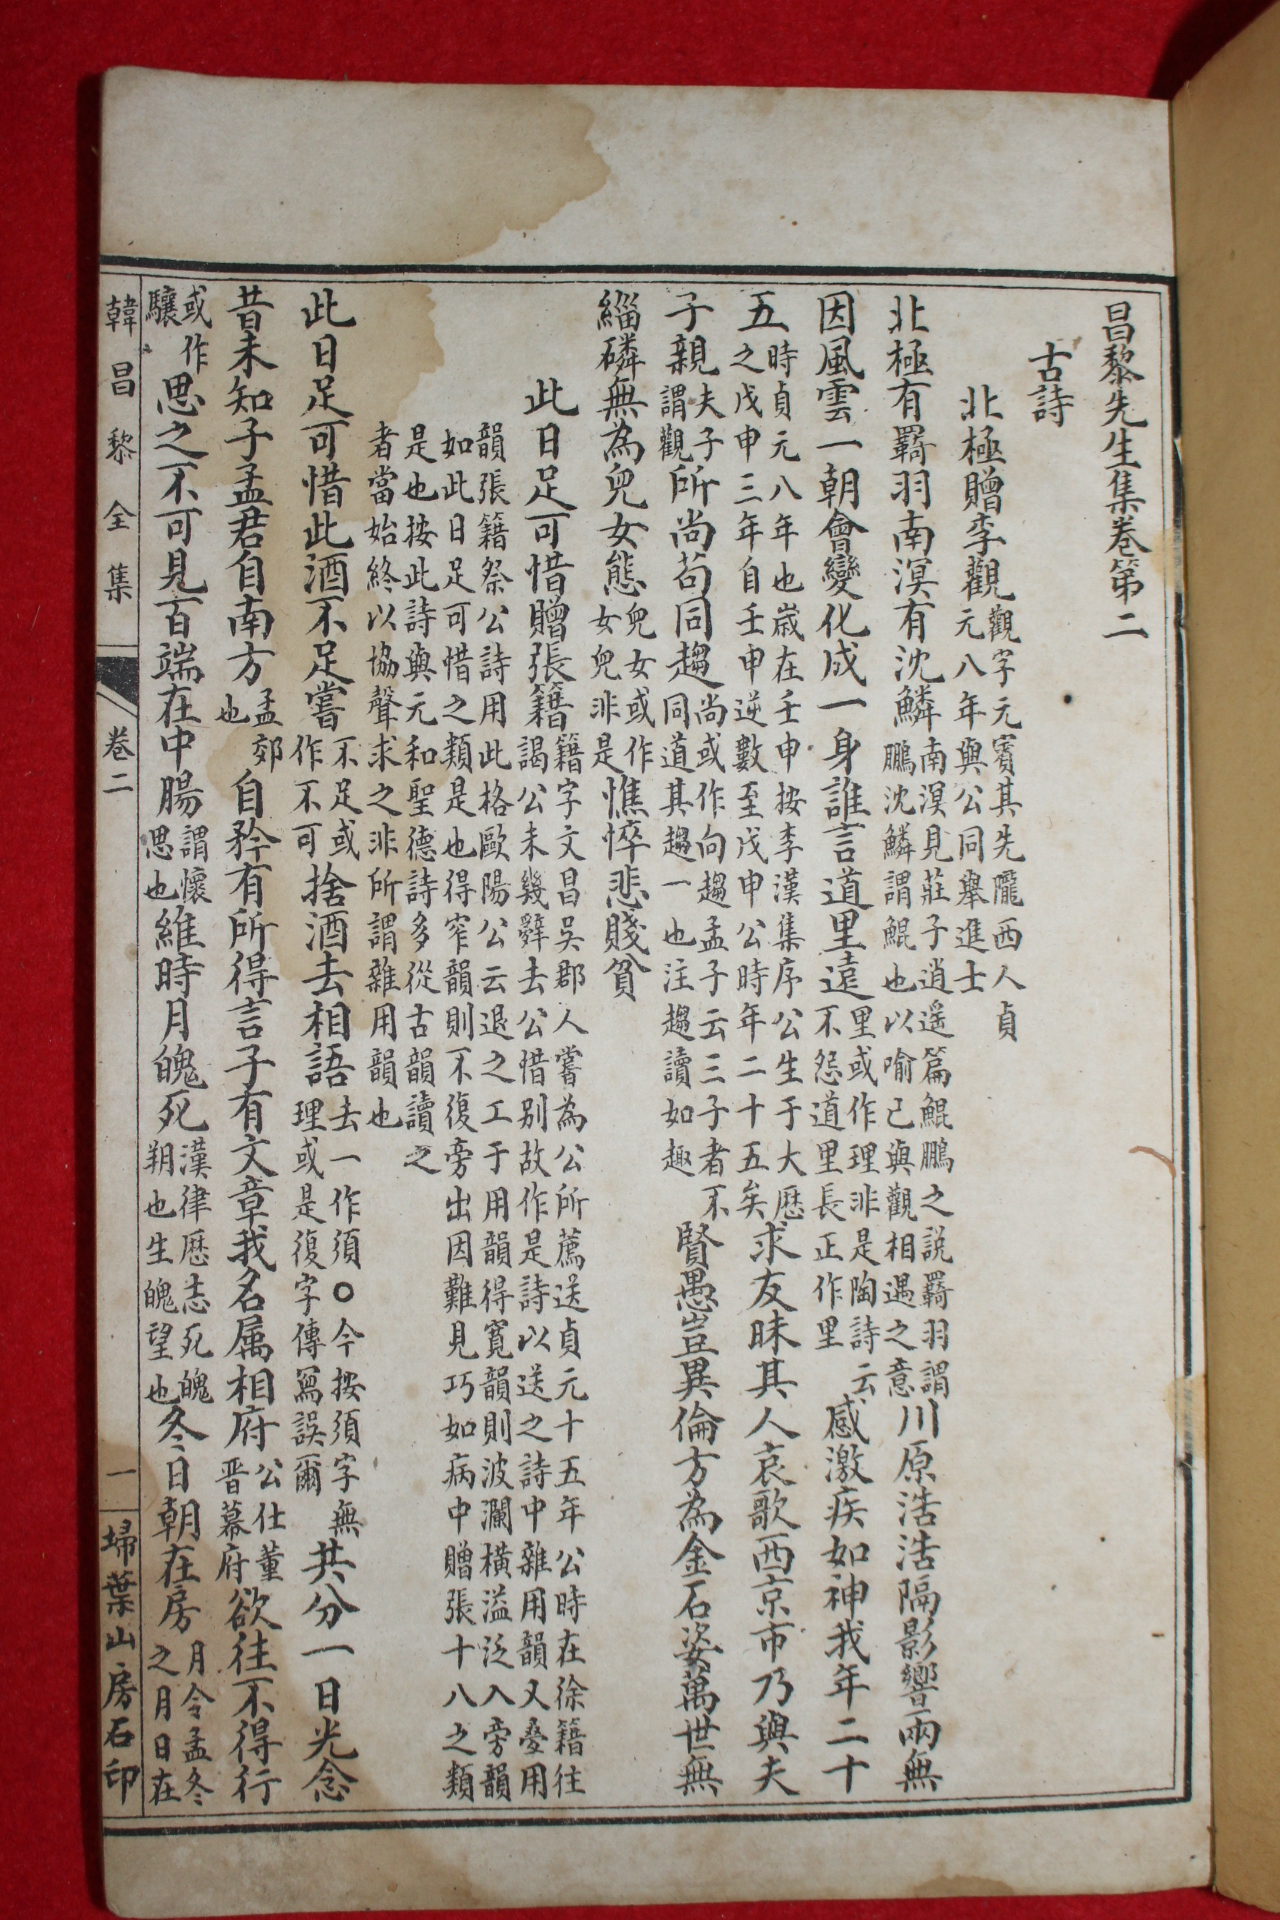 昌黎先生集卷第二
古詩
北極贈李觀觀字元賓其先隴西人貞元八年與公同舉進士
北極有羇羽南溟有沈鱗南溟見莊子逍遙篇鯤鵬之說羇羽謂鵬沈鱗謂鯤也以喻己與觀相遇之意川原浩浩隔影響兩無
因風雲一朝會變化成一身誰言道里遠里或作理非是陶詩云不怨道里長正作里感激疾如神我年二十
五時貞元八年也歲在壬申按李漢集序公生于大歷之戊申三年自壬申逆數至戊申公時年二十五矣求友昧其人哀歌西京市乃與夫
子親夫子謂觀所尚苟同趨尚或作向趨孟子云三子者不同道其趨一也注趨讀如趣賢愚豈異倫方為金石姿萬世無
緇磷無為兒女態兒女或作女兒非是憔悴悲賤貧
此日足可惜贈張籍籍字文昌吳郡人嘗為公所薦送貞元十五年公時在徐籍往謁公未幾辭去公惜别故作是詩以送之詩中雜用韻又疊用
韻張籍祭公詩用此格歐陽公云退之工于用韻得寬韻則波瀾橫溢泛入旁韻如此日足可惜之類是也得窄韻則不復旁出因難見巧如病中贈張十八之類
是也按此詩與元和聖德詩多從古韻讀之者當始終以協聲求之非所謂雜用韻也
此日足可惜此酒不足嘗不足或作不可捨酒去相語去一作須○今按須字無理或是復字傳寫誤爾共分一日光念
昔未知子孟君自南方孟郊也自矜有所得言子有文章我名属相府公仕董晋幕府欲往不得行
或作驤思之不可見百端在中腸謂懷思也維時月魄死漢律歷志死魄朔也生魄望也冬日朝在房月令孟冬之月日在
韓昌黎全集 卷二 一 埽葉山房石印